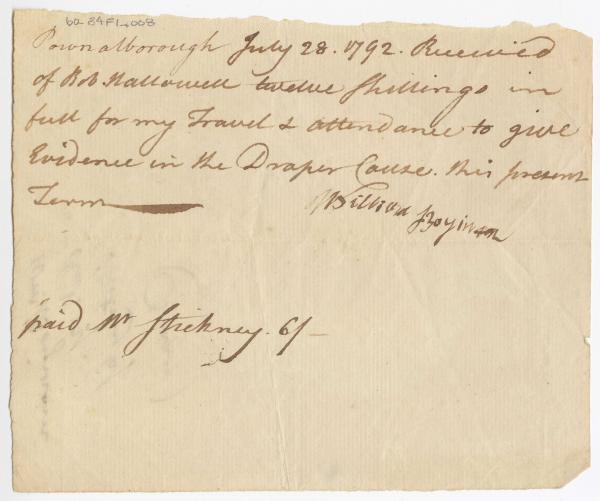 60-84F1-008
Pownalborough July 28. 1792. Received
of Rob Hallowell twelve Shillings in
full for my Travel & attendance to give
Evidence in the Draper Cause. this present
Term
William Boyinton
paid Mr Stickney. 6/-